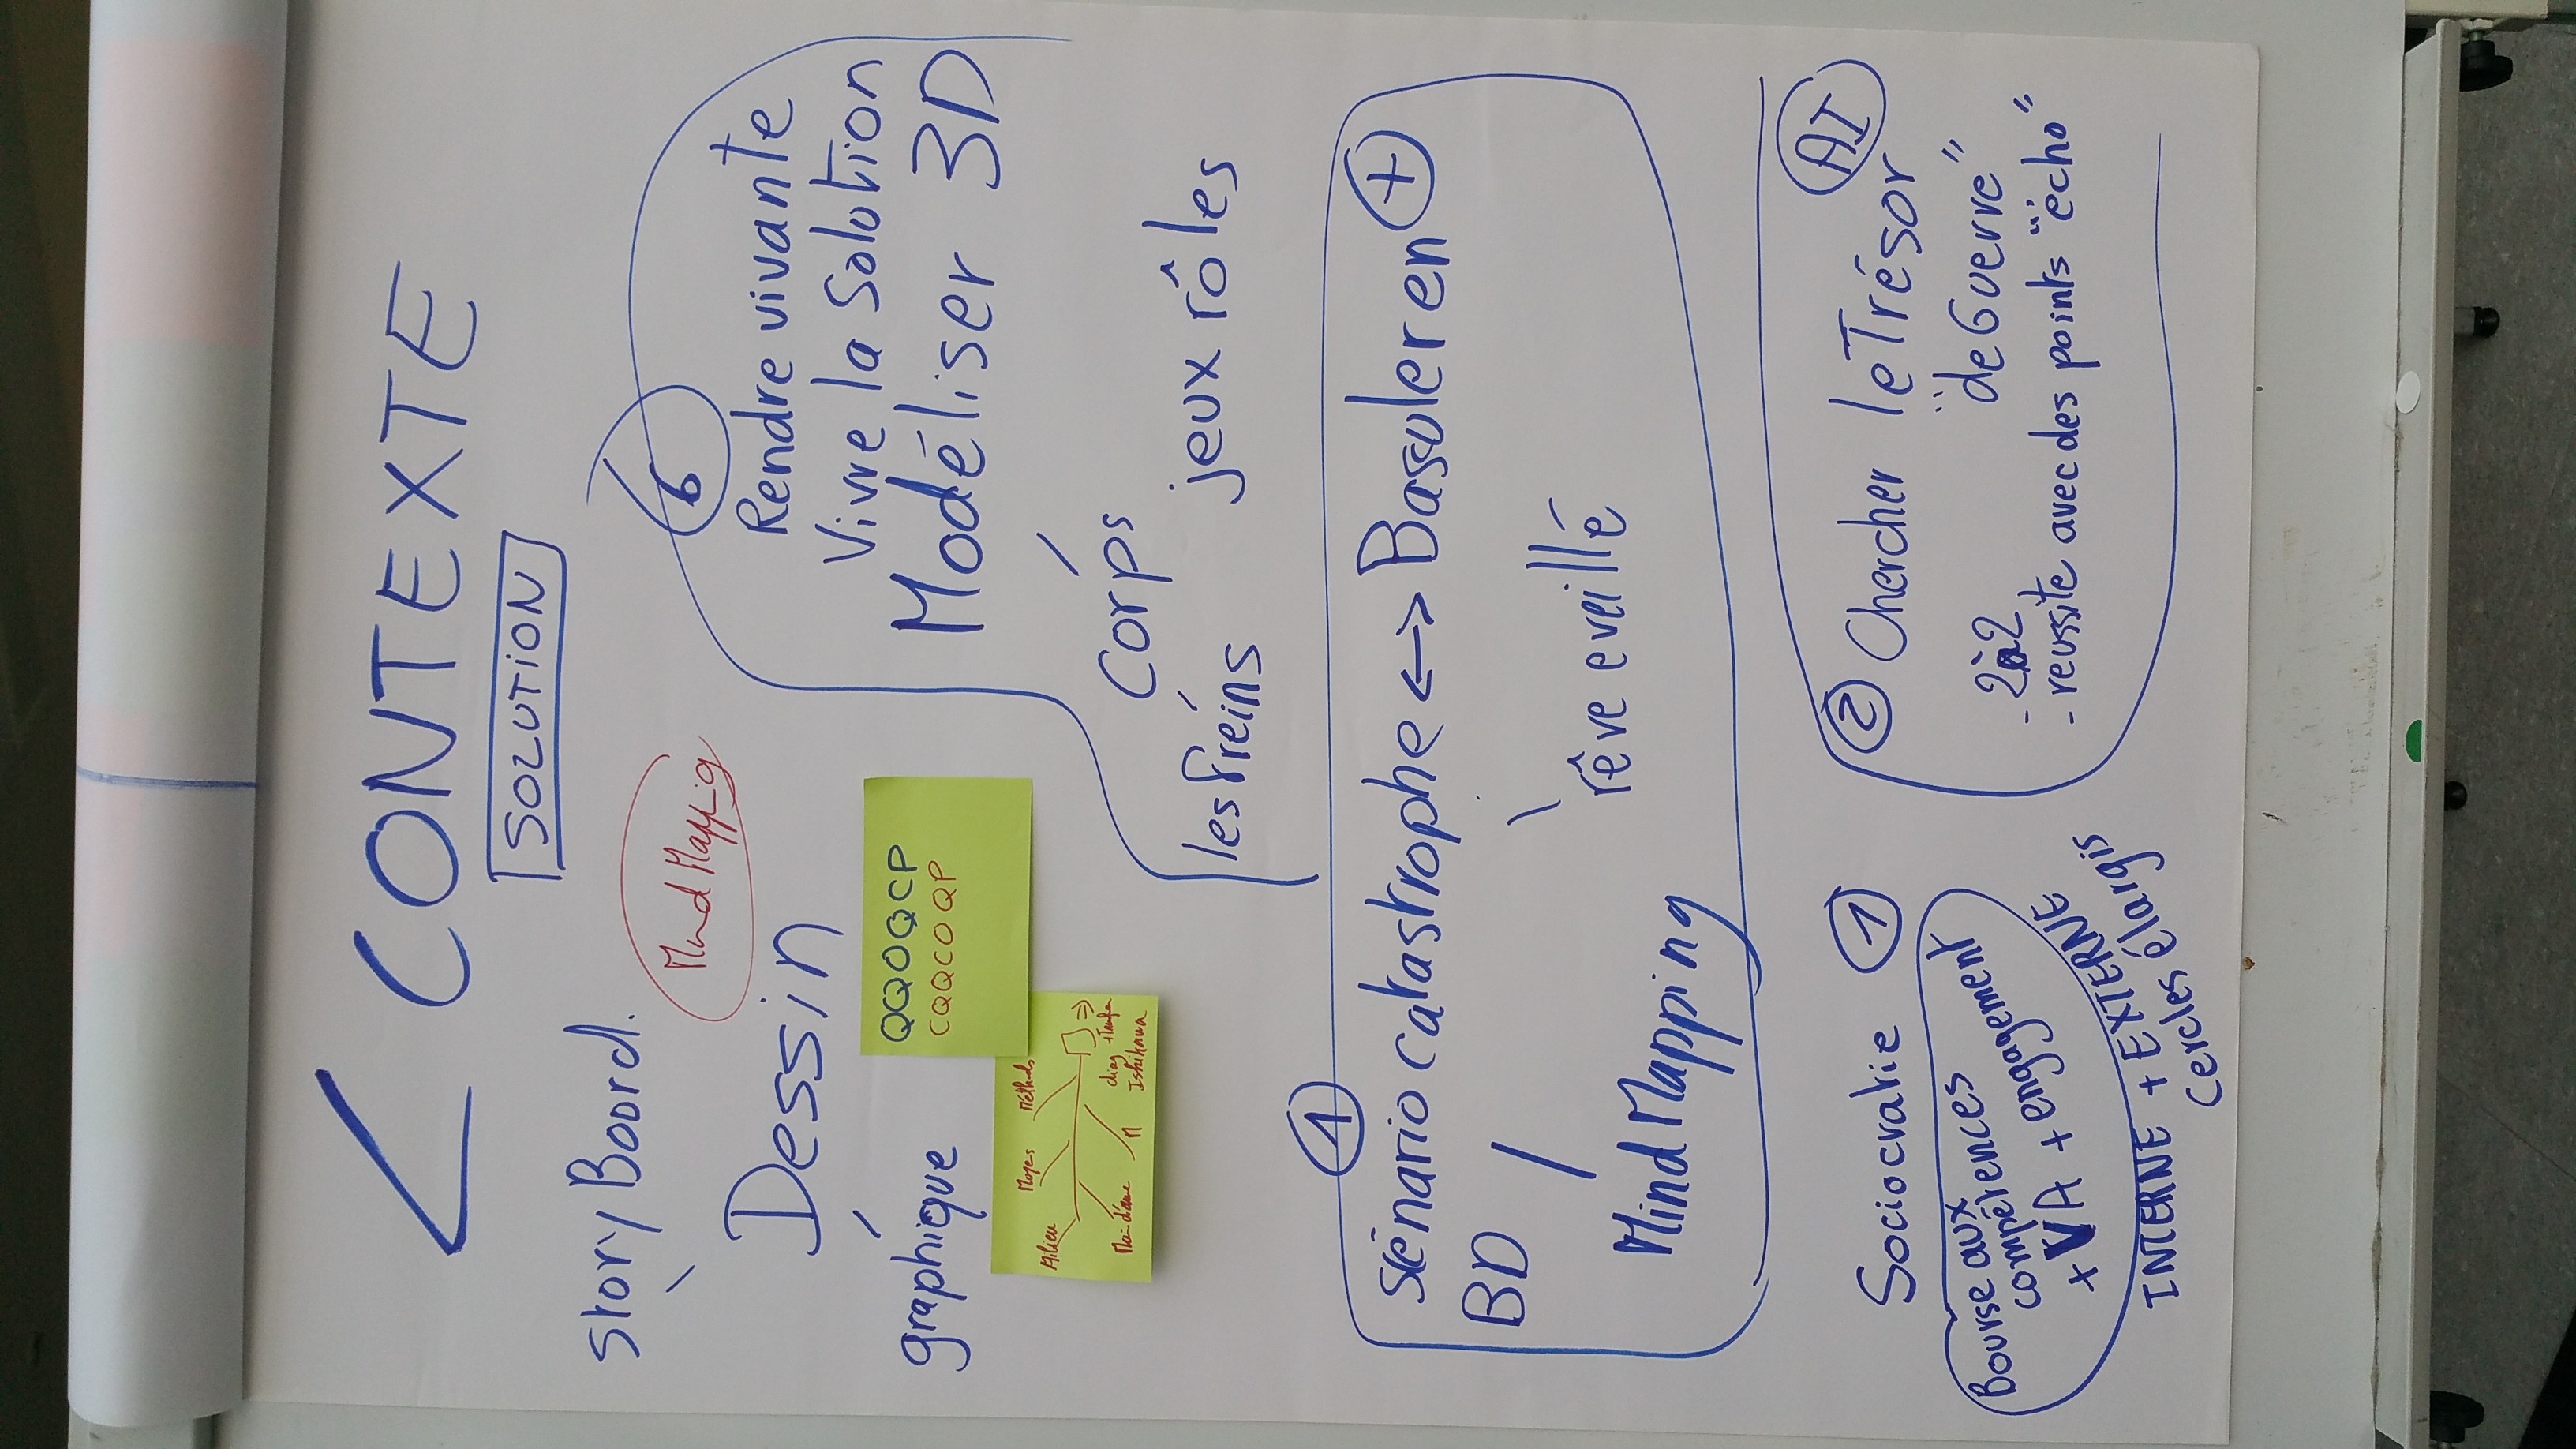 CONTEXTE
SOLUTION
Story Board.
Mind Mapping
Dessin
graphique
QQOQCP
CQQCOQP
Milieu
Moyens
Méthodes
Main d'œuvre
M
diag
Ishikawa
6
Rendre vivante
Vivre la Solution
Modéliser 3D
Corps
les freins
jeux rôles
1
Sénario catastrophe <-> Basculer en +
BD /
rêve eveillé
Mind Mapping
Sociocratie 1
Bourse aux
compétences
x VA + engagement
INTERNE + EXTERNE
cercles élargis
2 Chercher le Trésor
AI
"de Guerre"
- 2à2
- reussite avec des points "écho"